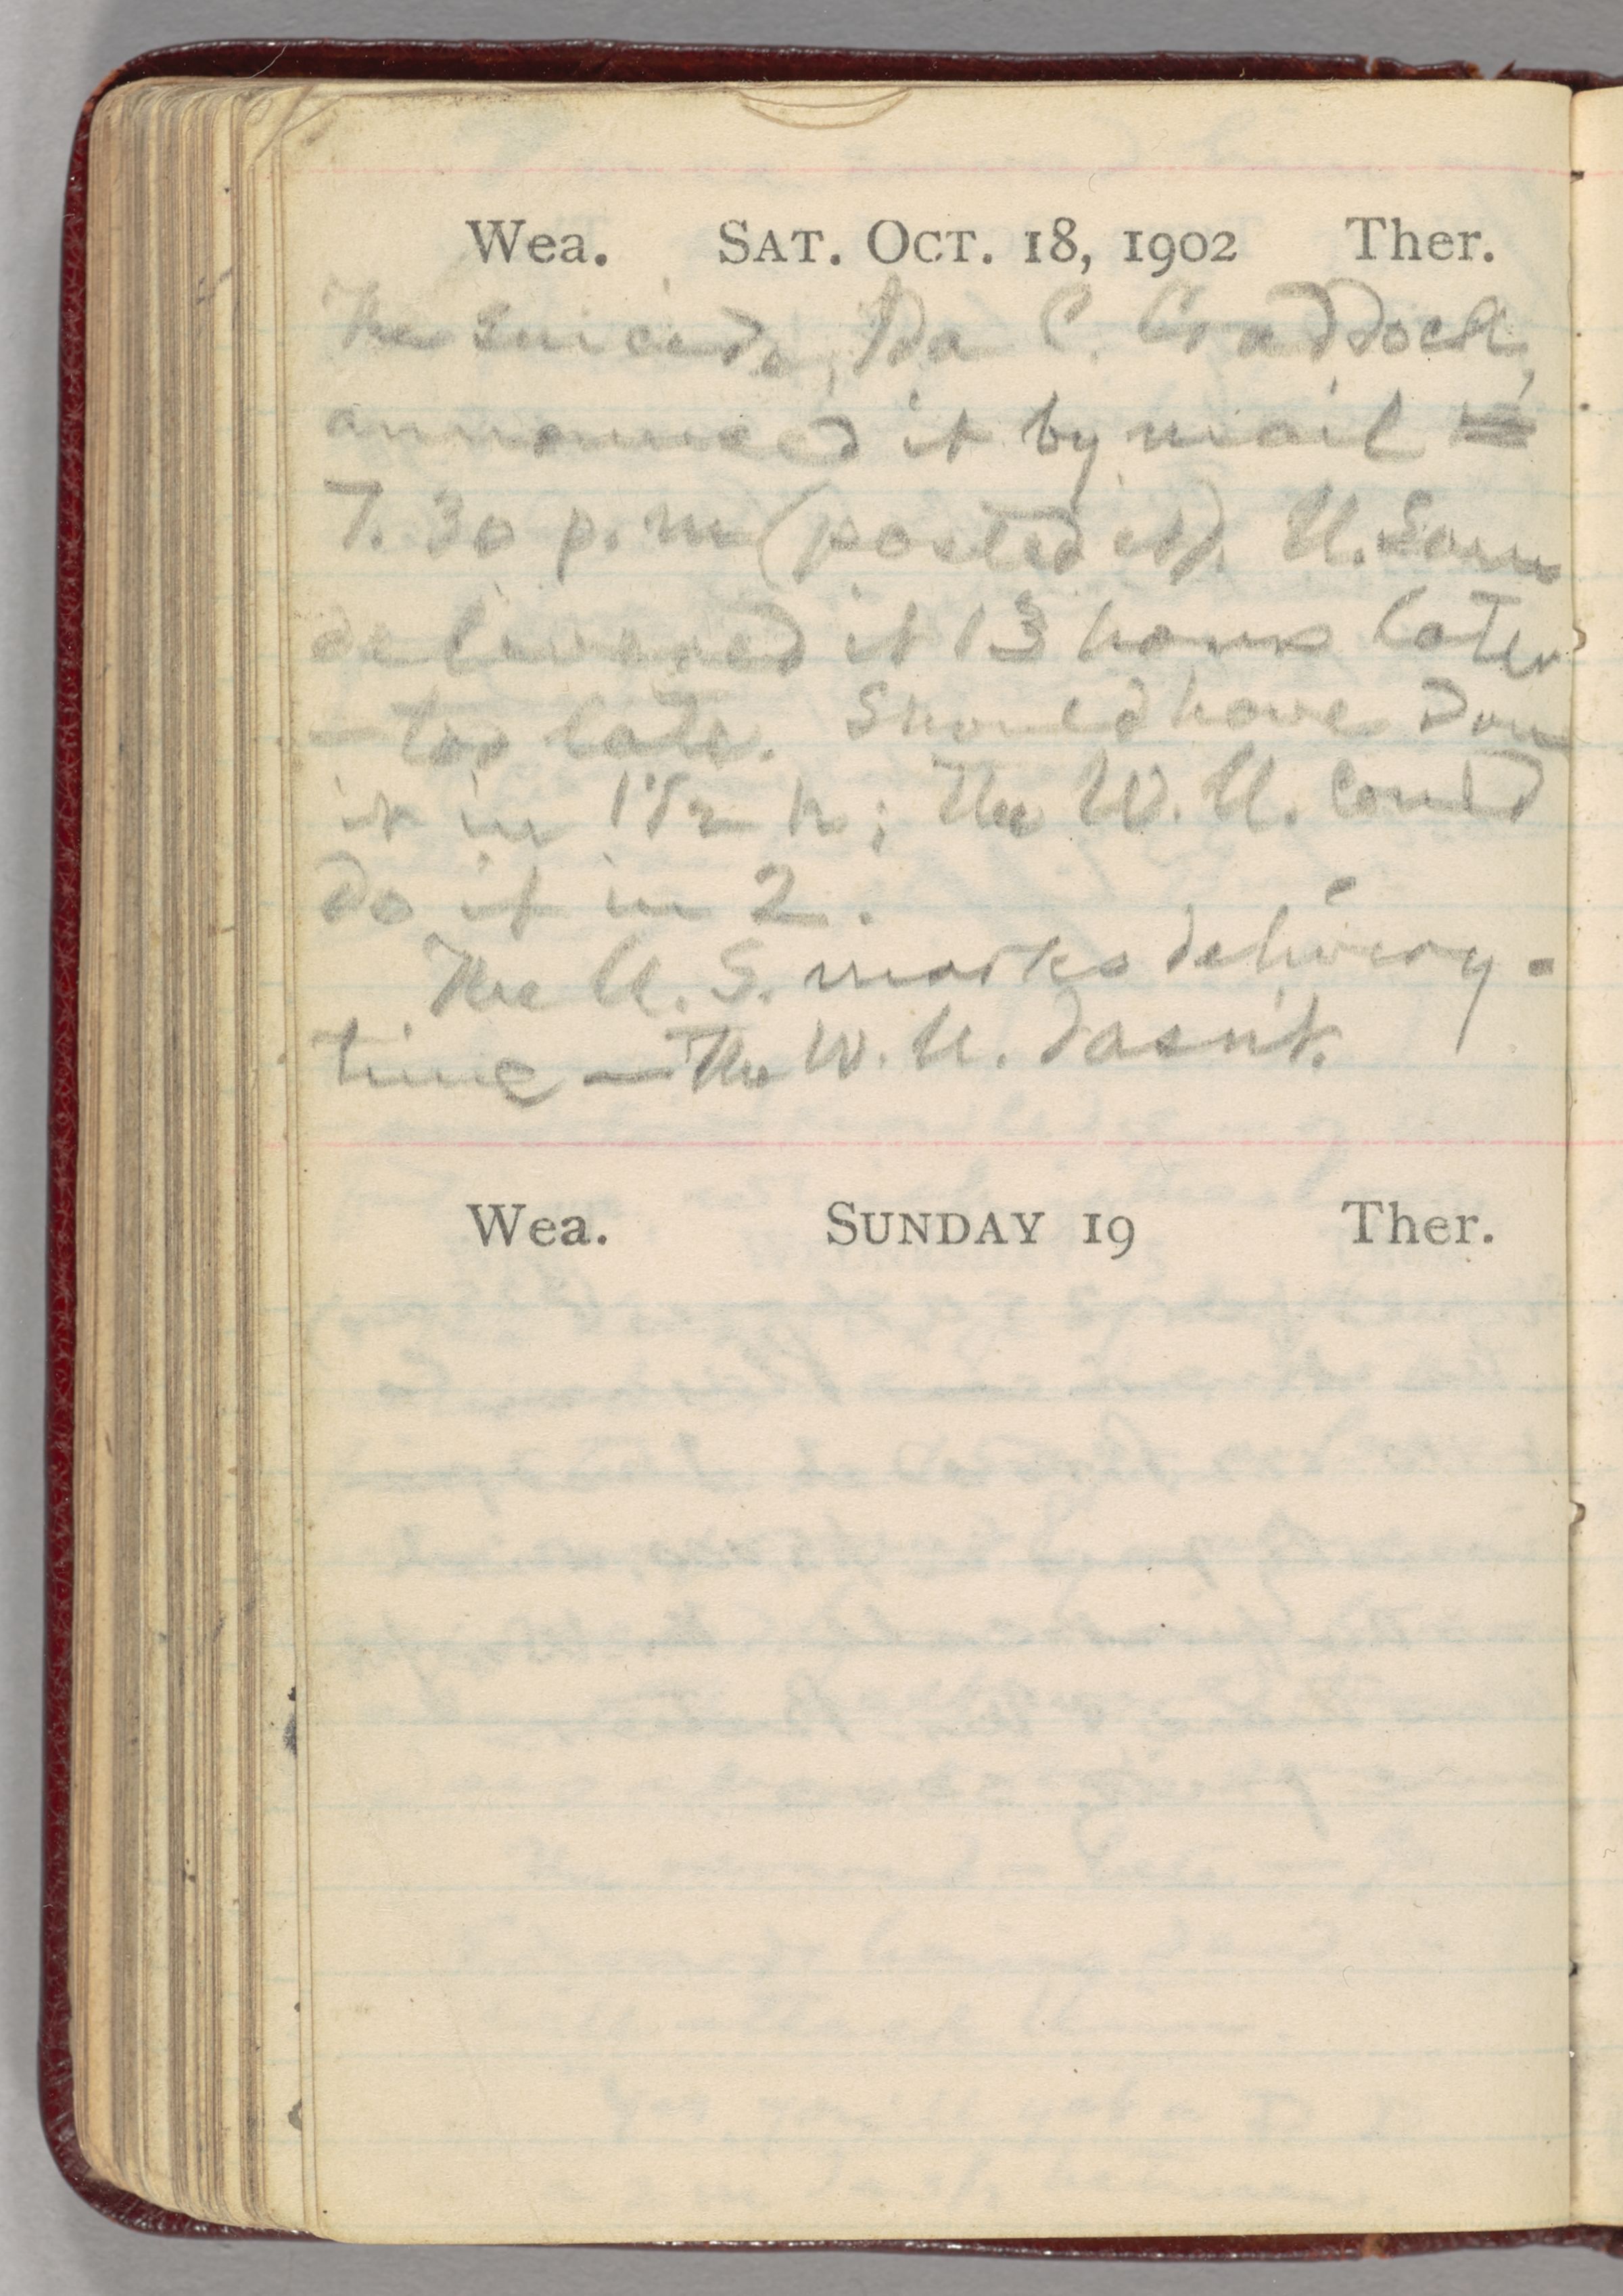 Wea. SAT. OCT. 18, 1902 Ther.
The suicide, Ida C. Craddock,
announced it by mail
7.30 p.m (posted it). U.
delivered it 13 hours later
—too late. Should have done
it in 1 1/2 h; The W. U. could
do it in 2.
The U. S. marks delivery-
time—The W. U. dasn't.
Wea. SUNDAY 19 Ther.